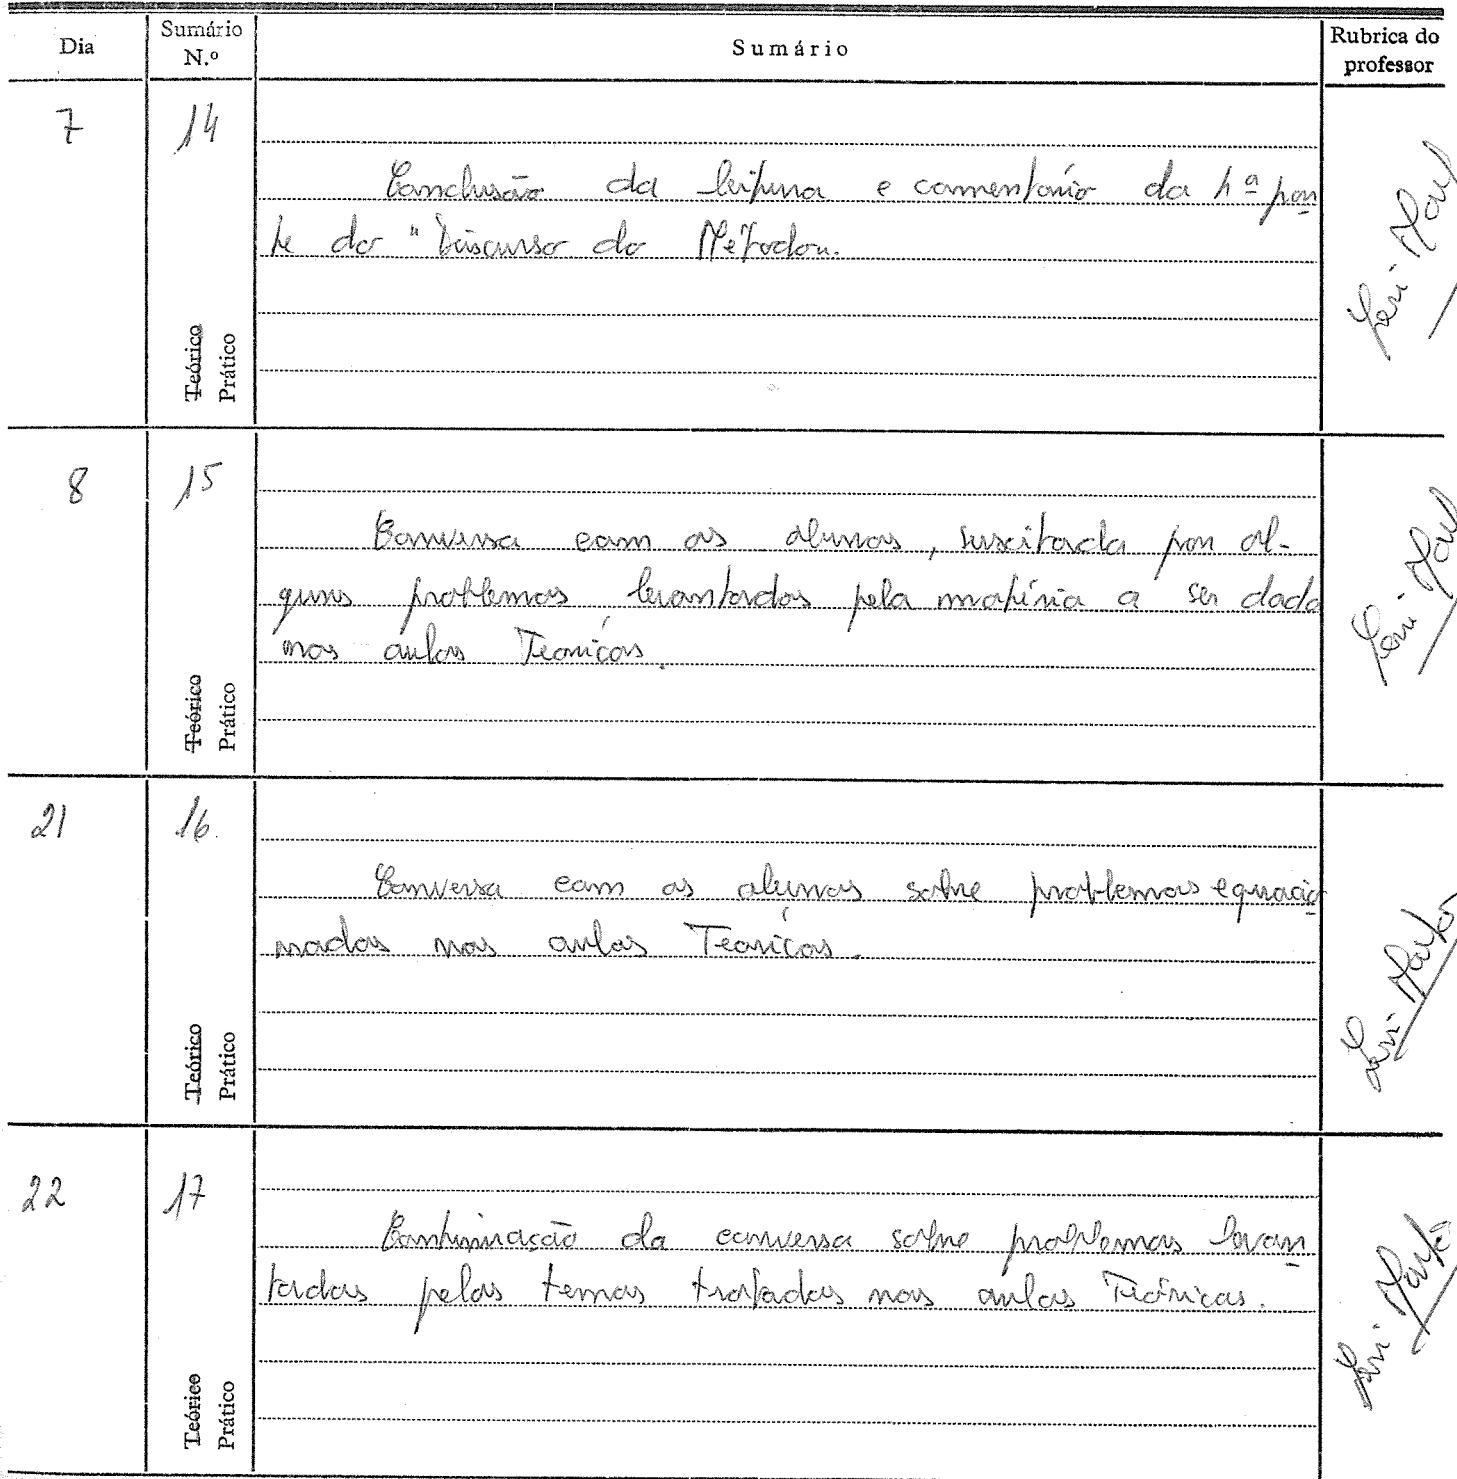 Dia
Sumário
N.º
Sumário
Rubrica do
professor
7
14
Conclusão da leitura e comentário da 1ª par
te do "Discurso do Método".
Teórico
Prático
8
15
Conversa com os alunos, suscitada por al-
guns problemas levantados pela matéria a ser dada
nas aulas Teóricas.
Teórico
Prático
21
16
Conversa com os alunos sobre problemas equacio
nados nas aulas Teóricas.
Teórico
Prático
22
17
Continuação da conversa sobre problemas levan
tados pelos temas tratados nas aulas Teóricas.
Teórico
Prático